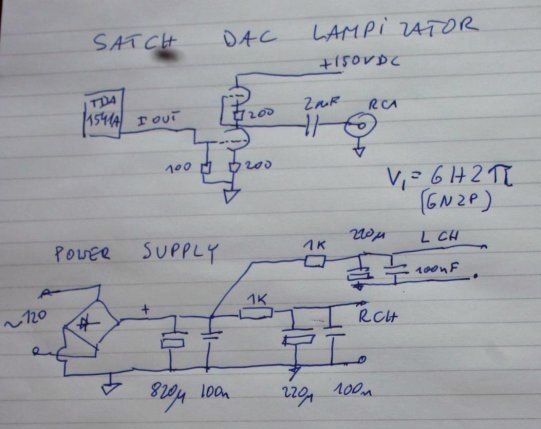 SATCH DAC LAMPIZATOR
+150VDC
TDA
1541A
I OUT
200
2mF
RCA
100
200
V1 = 6H2Π
(6N2P)
POWER SUPPLY
1K
220µ
L CH
100nF
~120
+
1K
RCH
820µ
100n
220µ
100n